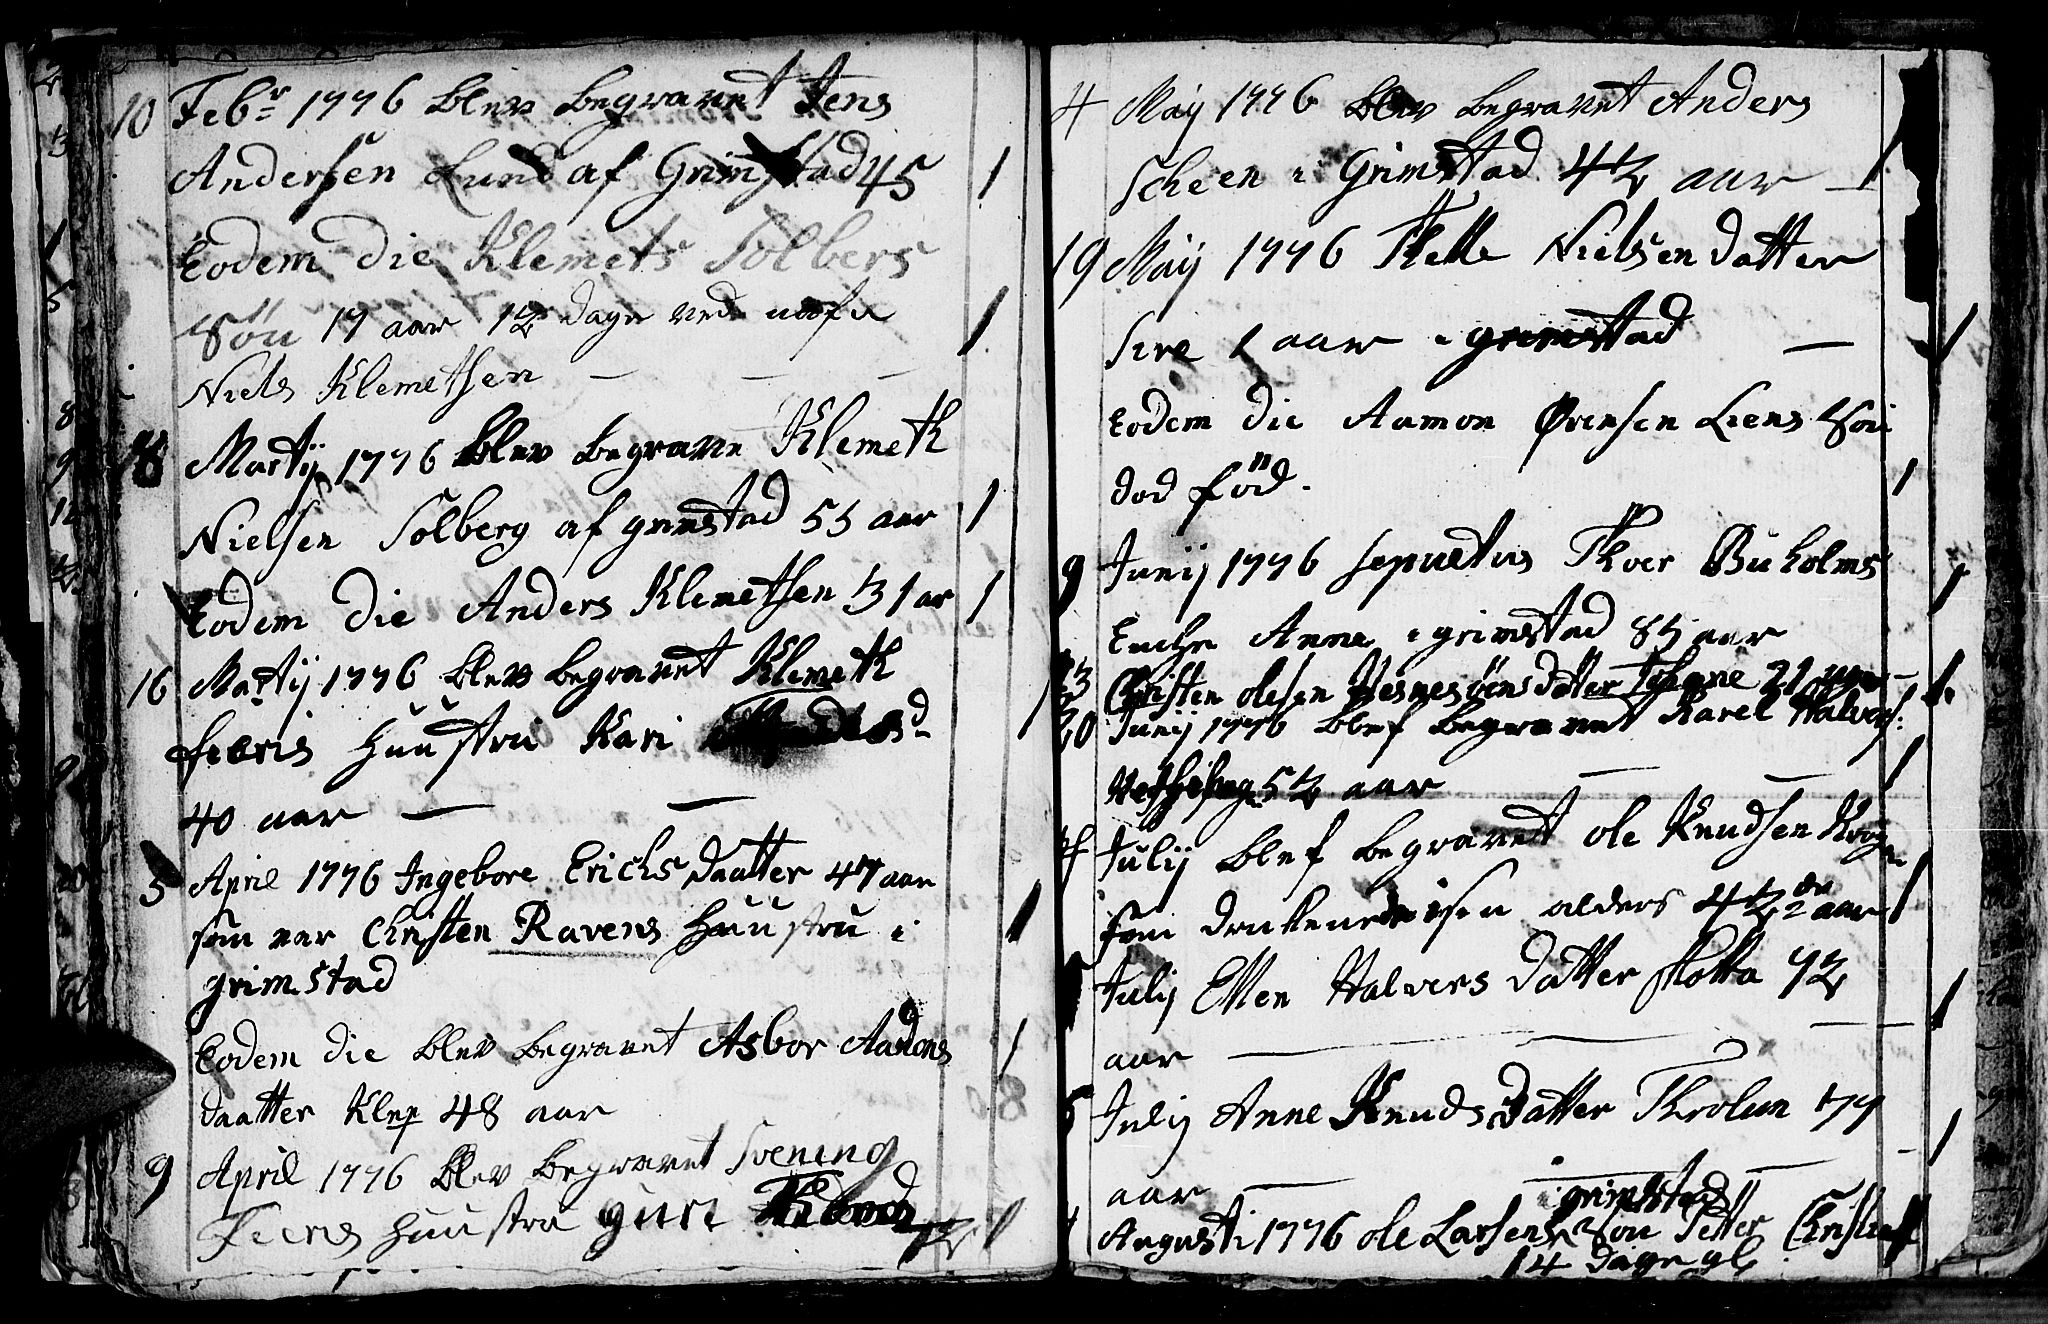 10 Febr 1776 blev begravet Jens
Andersen Lund af Grimstad 45 1
Eodem die Klemets Solbers
Søn 17 aar 12 dage ved nafn 1
Niels Klemetsen — — —
18 Martij 1776 blev begrave Klemeth
Nielsen Solberg af grimstad 55 aar 1
Eodem die Anders Klemetsen 31 ar 1
16 Martij 1776 blev begravet Klemeth
feeris Huustru Kari
40 aar — —
5 April 1776 Ingebore Erichs Daatter 47 aar
som var Christen Ravens Huustru i 1
grimstad
Eodem die blev begravet Asbor Aadons 1
daatter Klep 48 aar
9 April 1776 blev begravet Svening
Feeris Huustru guri 1
4 Maij 1776 blev begravet Anders
Scheen i Grimstad 42 aar — 1
19 Maij 1776 Thelle Nielsen datter
Sire 1 aar i grimstad — 1
Eodem die Aamon Ørensen Liens Søn
dod fød. 1
9 Junij 1776 sepultus Thoer Buholms 1
Enche Anne i grimstad 85 aar
23 Christen olesen Datter Johane 21 1
20 Junij 1776 blef begravet Karel Halvors:
52 aar — — 1
Julij blef begravet ole Knudsen
som alders 42 aar 1
Julij Ellen Halvers Datter 72 1
aar —
Julij Anne Knuds Datter 77 1
aar — —
i grimstad
Augusti 1776 ole Larsens Søn Petter
14 dage gl